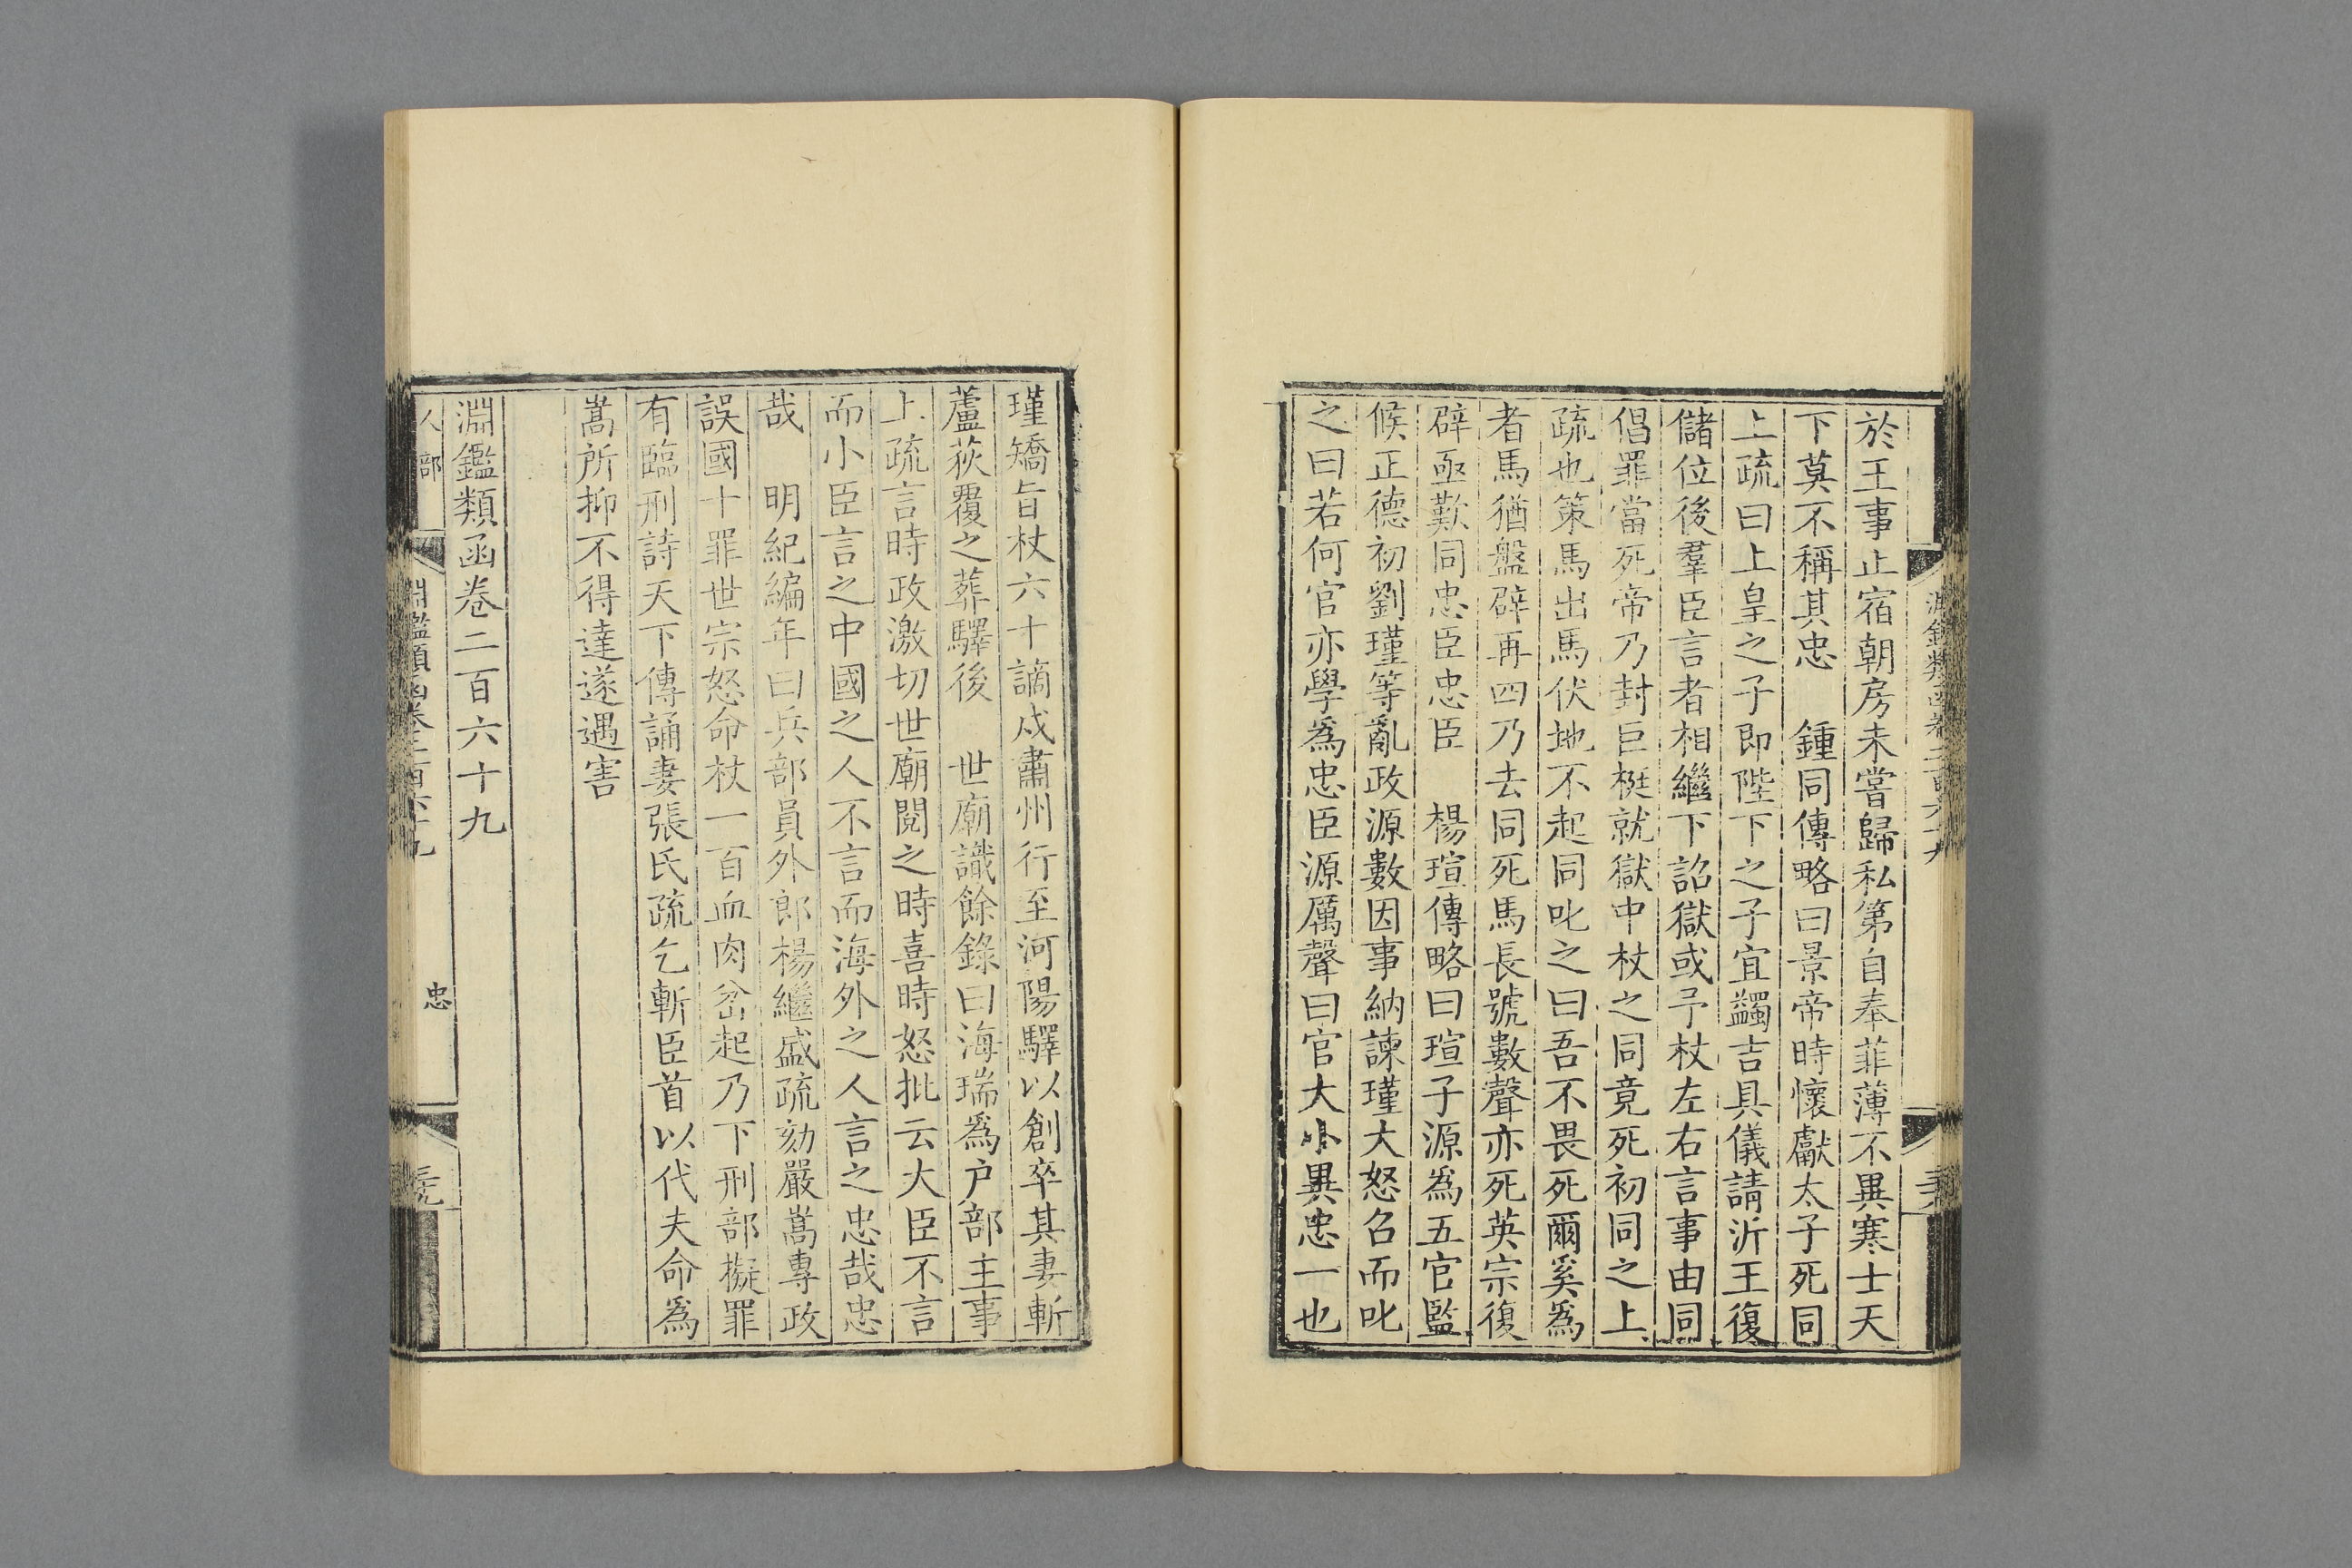 淵鑑類函卷二百六十九
於王事止宿朝房未嘗歸私第自奉菲薄不異寒士天
下莫不稱其忠　鍾同傳略曰景帝時懷獻太子死同
上疏曰上皇之子即陛下之子宜蠲吉具儀請沂王復
儲位後羣臣言者相繼下詔獄或予杖左右言事由同
倡罪當死帝乃封巨梃就獄中杖之同竟死初同之上
疏也策馬出馬伏地不起同叱之曰吾不畏死爾奚爲
者馬猶盤辟再四乃去同死馬長號數聲亦死英宗復
辟亟歎同忠臣忠臣　楊瑄傳略曰瑄子源爲五官監
候正德初劉瑾等亂政源數因事納諫瑾大怒召而叱
之曰若何官亦學爲忠臣源厲聲曰官大小異忠一也
瑾矯旨杖六十謫戍肅州行至河陽驛以創卒其妻斬
蘆荻覆之葬驛後　世廟識餘錄曰海瑞爲户部主事
上疏言時政激切世廟閱之時喜時怒批云大臣不言
而小臣言之中國之人不言而海外之人言之忠哉忠
哉　明紀編年曰兵部員外郎楊繼盛疏劾嚴嵩專政
誤國十罪世宗怒命杖一百血肉岔起乃下刑部擬罪
有臨刑詩天下傳誦妻張氏疏乞斬臣首以代夫命爲
嵩所抑不得達遂遇害
淵鑑類函卷二百六十九
人部
淵鑑類函卷二百六十九
忠